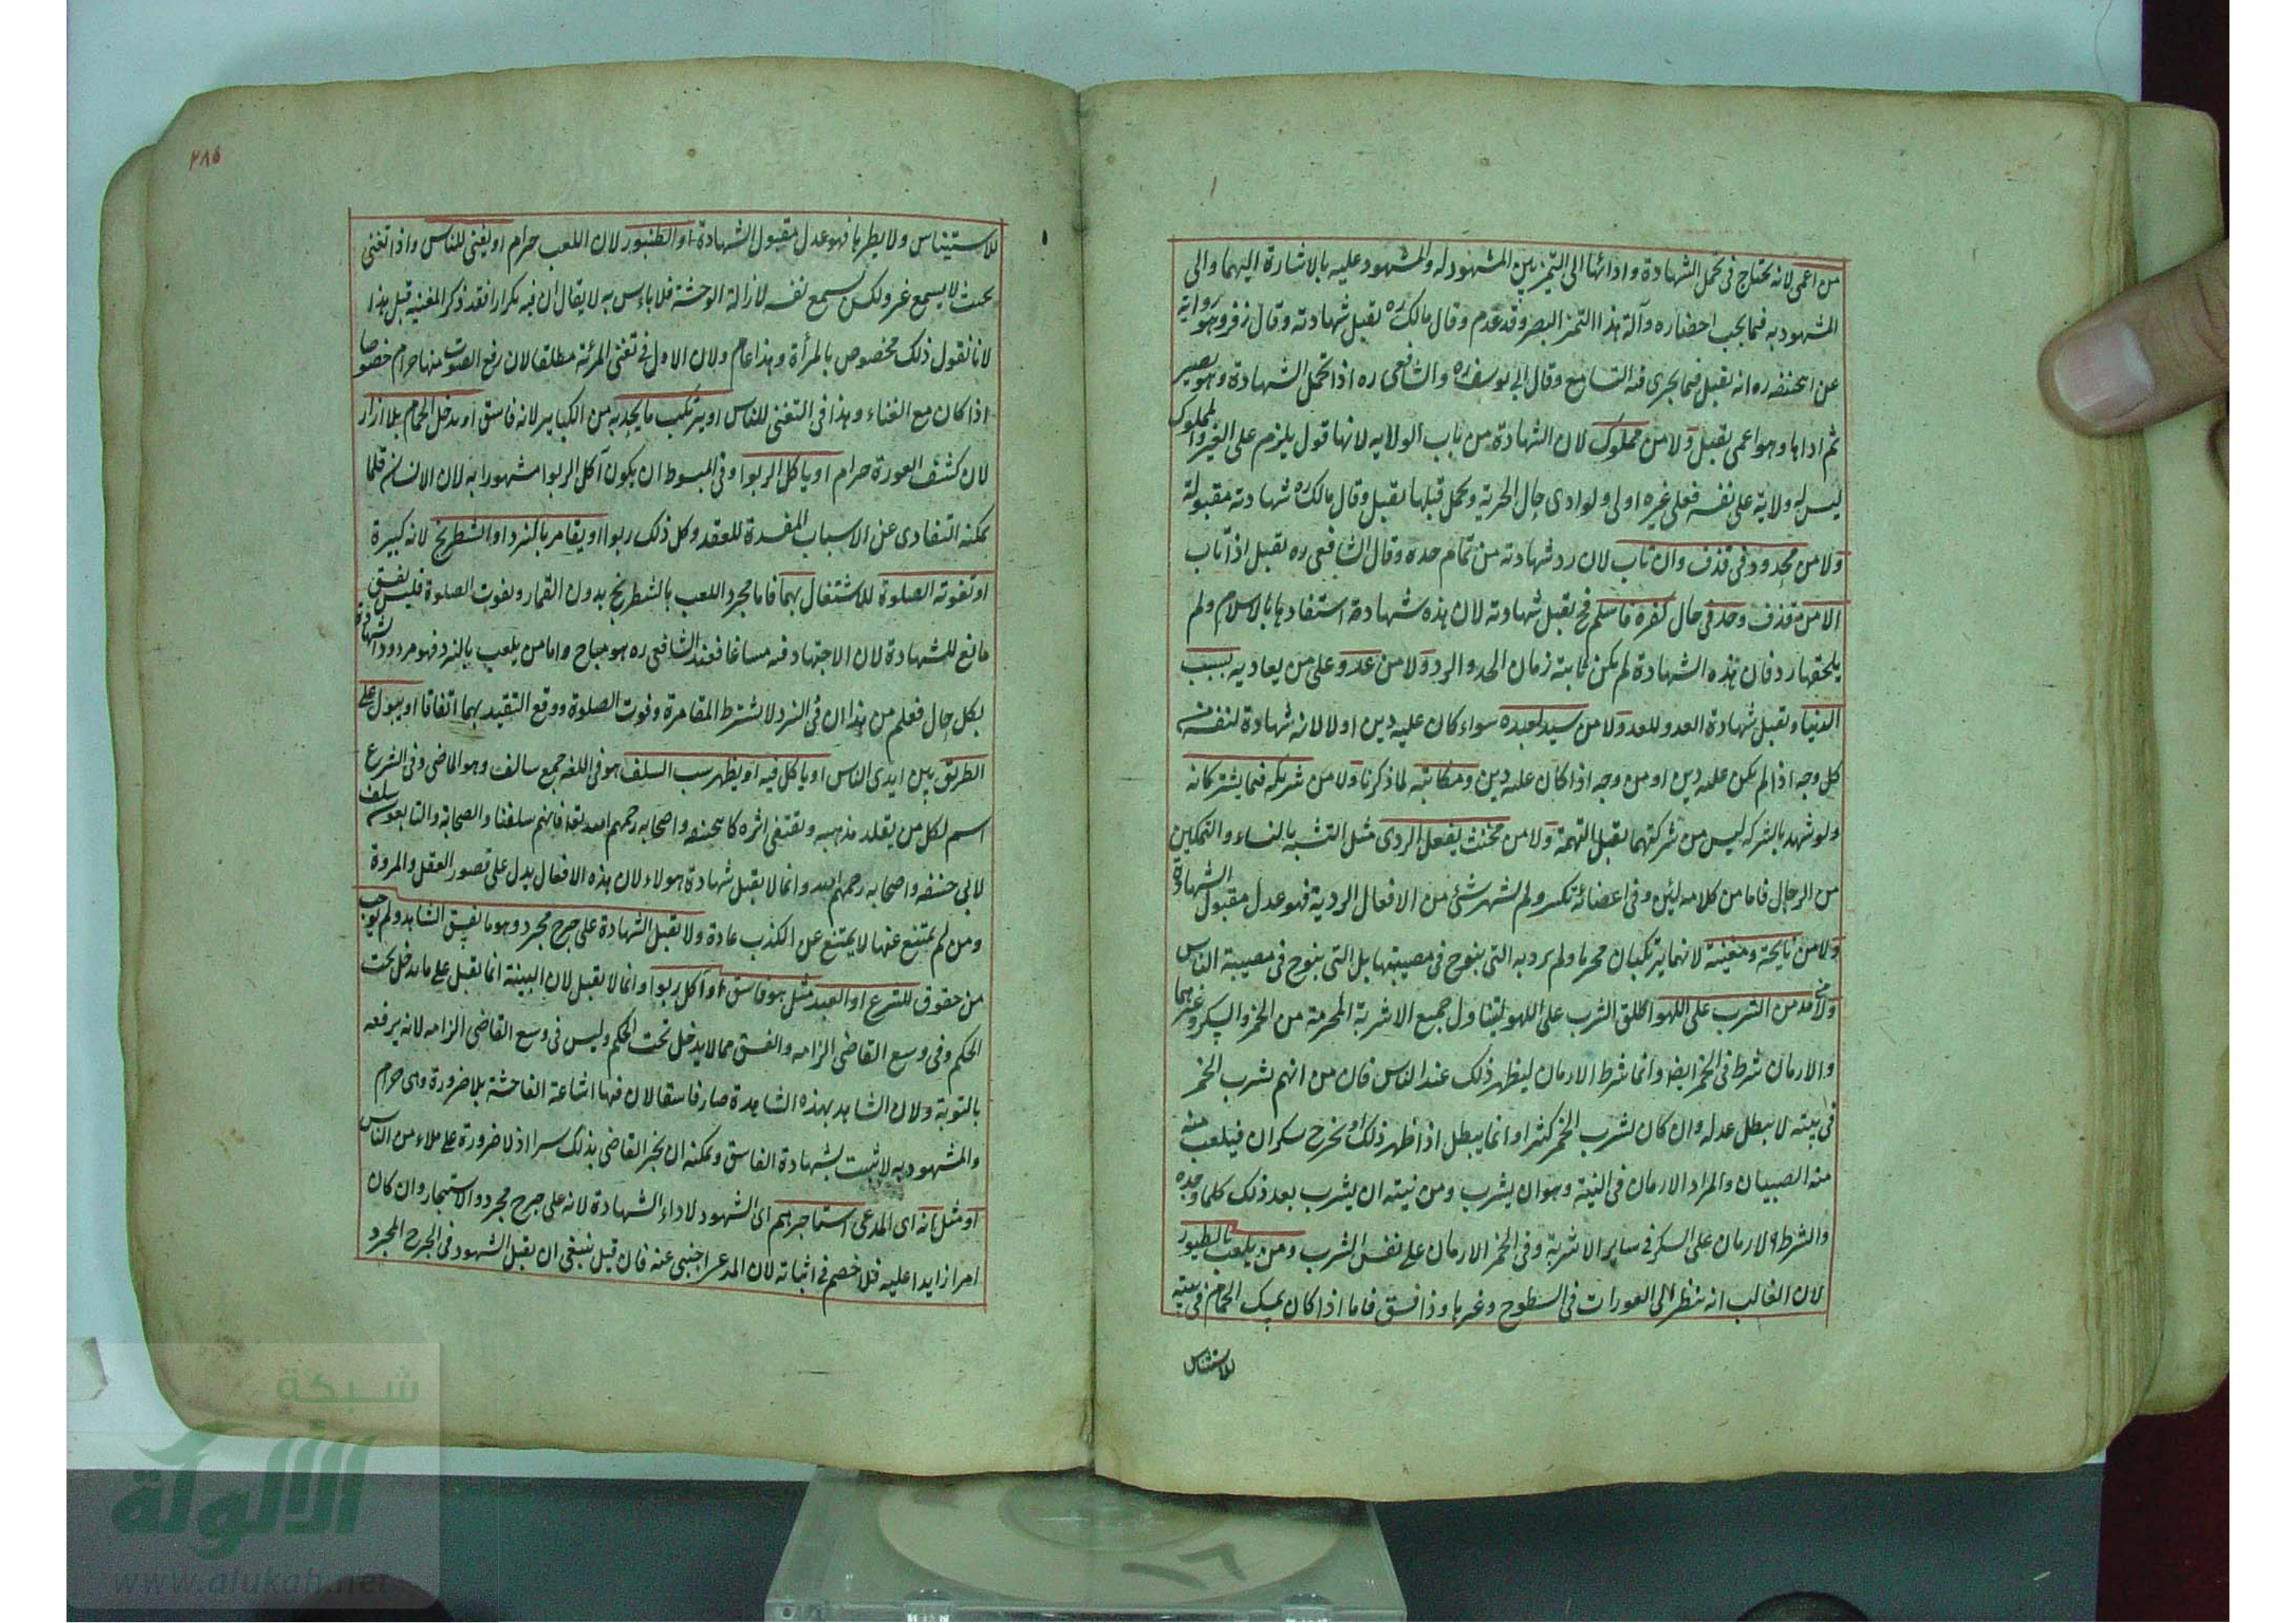 من اعمى لانه يحتاج فى تحمل الشهادة وادائها الى التميز بين المشهود له والمشهود عليه بالاشارة اليهما والى
المشهود به فيما يجب احضاره وآلة هذا التميز البصر وقد عدم وقال مالك ره يقبل شهادته وقال زفر وهو رواية
عن ابيحنيفه ره انه يقبل فيما يجرى فيه التسامع وقال ابى يوسف ره والشافعى ره اذا تحمل الشهادة وهو بصير
ثم اداها وهو اعمى يقبل ولا من مملوك لان الشهادة من باب الولايه لانها قول يلزم على الغير والمملوك
ليس له ولاية على نفسه فعلى غيره اولى ولو ادى حال الحرية وتحمل قبلها يقبل وقال مالك ره شهادته مقبولة
ولا من محدود فى قذف وان تاب لان رد شهادته من تمام حده وقال الشافعى ره يقبل اذا تاب
الا من قذف وحد فى حال كفره فاسلم فح يقبل شهادته لان هذه شهادة استفادها بالاسلام ولم
يلحقها رد فان هذه الشهادة لم يكن ثابتة زمان الحد والرد ولا من عدو على من يعاديه بسبب
الدنيا ويقبل شهادة العدو للعدو ولا من سيد لعبده سواء كان عليه دين او لا لانه شهادة لنفسه من
كل وجه اذا لم يكن عليه دين او من وجه اذا كان عليه دين ومكاتبه لما ذكرنا ولا من شريكه فيما يشتركانه
ولو شهد بالشركه ليس من شركتهما يقبل التهمة ولا من مخنث يفعل الردى مثل التشبه بالنساء والتمكين
من الرجال فاما من كلامه لين وفى اعضائه تكسر ولم يشهر شئ من الافعال الردية فهو عدل مقبول الشهادة
ولا من نايحة ومغنية لانهما يرتكبان محرما ولم يرد به التى ينوح فى مصيبتها بل التى ينوح فى مصيبة الناس
ولا من مدمن الشرب على اللهو اطلق الشرب على اللهو ليتناول جميع الاشربة المحرمة من الخمر والسكر وغيرهما
والادمان شرط فى الخمر ايضا وانما شرط الادمان ليظهر ذلك عند الناس فان من اتهم بشرب الخمر
فى بيته لا يبطل عدله وان كان يشرب الخمر كثيرا وانما يبطل اذا ظهر ذلك او يخرج سكران فيلعب منه
منه الصبيان والمراد الادمان فى النية وهو ان يشرب ومن نيته ان يشرب بعد ذلك كلما وجده
والشرط الادمان على السكر فى ساير الاشربة وفى الخمر الادمان على نفس الشرب ومن يلعب بالطيور
لان الغالب انه ينظر الى العورات فى السطوح وغيرها وذا فسق فاما اذا كان يمسك الحمام فى بيته
للاستيناس
٢٨٥
للاستيناس ولا يطيرها فهو عدل مقبول الشهادة او الطنبور لان اللعب حرام او يغنى للناس واذا تغنى
بحيث لا يسمع غيره ولكن يسمع نفسه لازالة الوحشة فلا باءس به لا يقال ان فيه تكرارا فقد ذكر المغنيه قبل هذا
لانا نقول ذلك مخصوص بالمرأة وهذا عام ولان الاول فى تغنى المرئة مطلقا لان رفع الصوت منها حرام خصوصا
اذا كان مع الغناء وهذا فى التغنى للناس او يرتكب ما يحد به من الكباير لانه فاسق او يدخل الحمام بلا ازار
لان كشف العورة حرام او ياكل الربوا وفى المبسوط ان يكون آكل الربوا مشهورا به لان الانسان قلما
يمكنه التفادى عن الاسباب المفسدة للعقد وكل ذلك ربوا او يقامر بالنرد او الشطرنج لانه كبيرة
او تفوته الصلوة للاشتغال بهما فاما مجرد اللعب بالشطرنج بدون القمار وفوت الصلوة فليس بفسق
مانع للشهادة لان الاجتهاد فيه مساغا فعند الشافعى ره هو مباح واما من يلعب بالنرد فهو مردود الشهادة
بكل حال فعلم من هذا ان فى النرد لا يشترط المقامرة وفوت الصلوة ووقع التقييد بهما اتفاقا او يبول على
الطريق بين ايدى الناس او ياكل فيه او يظهر سب السلف هو فى اللغه جمع سالف وهو الماضى وفى الشرع
اسم لكل من يقلد مذهبه ويقتفى اثره كابيحنيفه واصحابه رحمهم الله تعا فانهم سلفنا والصحابة والتابعون سلف
لابى حنيفه واصحابه رحمهم الله وانما لا يقبل شهادة هولاء لان هذه الافعال يدل على قصور العقل والمروة
ومن لم يمتنع عنها لا يمتنع عن الكذب عادة ولا يقبل الشهادة على جرح مجرد وهو ما يفسق الشاهد ولم يوجب
من حقوق للشرع او العبد مثل هو فاسق او آكل ربوا وانما لا يقبل لان البينة انما يقبل على ما يدخل تحت
الحكم وفى وسع القاضى الزامه والفسق مما لا يدخل تحت الحكم وليس فى وسع القاضى الزامه لانه يرفعه
بالتوبة ولان الشاهد بهذه الشاهدة صار فاسقا لان فيها اشاعة الفاحشة بلا ضرورة وهى حرام
والمشهود به لا يثبت بشهادة الفاسق ويمكنه ان يخبر القاضى بذلك سرا اذ لا ضرورة على ملاء من الناس
او مثل انه اى المدعى استاجرهم اى الشهود لاداء الشهادة لانه على جرح مجرد والاستيجار وان كان
امرا زايدا عليه فلا خصم فى اثباته لان المدعى اجنبى عنه فان قيل ينبغى ان يقبل الشهود فى الجرح المجرد
شبكة
الألوكة
www.alukah.net